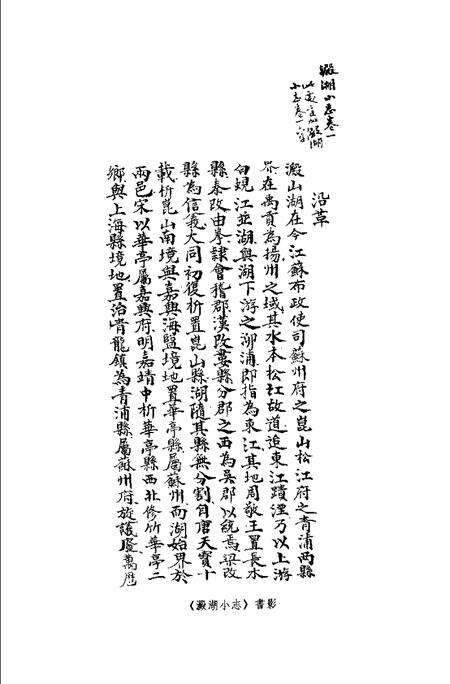 澱湖小志卷一
此處宜加澱湖
小志卷一字
沿革
澱山湖在今江蘇布政使司蘇州府之崑山松江府之青浦兩縣
界在禹貢為揚州之域其水本松江故道迨東江蹟湮乃以上游
白蜆江並湖與湖下游之泖浦即指為東江其地周敬王置長水
縣秦改由拳隸會稽郡漢改婁縣分郡之西為吳郡以統焉梁改
縣為信義大同初復析置崑山縣湖隨其縣無分割自唐天寶十
載析崑山南境與嘉興海鹽境地置華亭縣屬蘇州而湖始界於
兩邑宋以華亭屬嘉興府明嘉靖中析華亭縣西北修竹華亭二
鄉與上海縣境地置治青龍鎮為青浦縣屬蘇州府旋議廢萬歷
《澱湖小志》書影